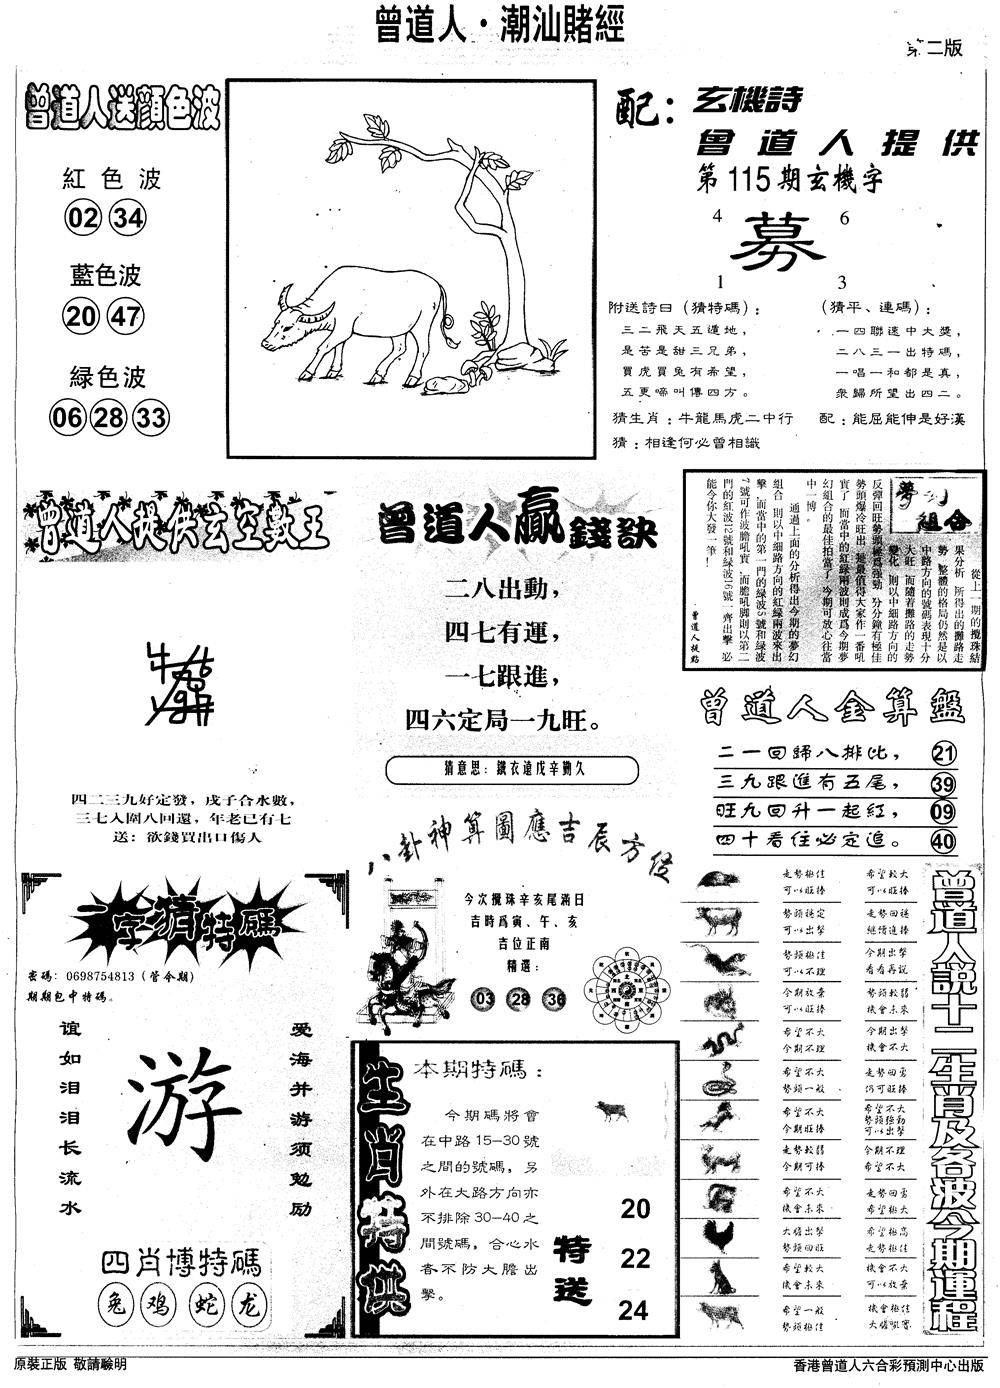 曾道人·潮汕賭經
第二版
曾道人送顔色波
紅色波
02 34
藍色波
20 47
緑色波
06 28 33
配:玄機詩
曾道人提供
第115期玄機字
4 6
募
1 3
附送詩曰(猜特碼):
三二飛天五遁地,
是苦是甜三兄弟,
買虎買兔有希望,
五更啼叫傳四方。
猜生肖:牛龍馬虎二中行
猜:相逢何必曾相識
(猜平、連碼):
一四聯速中大獎,
二八三一出特碼,
一唱一和都是真,
衆歸所望出四二。
配:能屈能伸是好漢
曾道人提供玄空數王
四二三九好定發,戌子合水數,
三七入圍八回還,年老已有七
送:欲錢買出口傷人
曾道人贏錢訣
二八出動,
四七有運,
一七跟進,
四六定局一九旺。
猜意思:鐵衣遠戍辛勤久
夢幻組合
從上一期的攪珠結
果分析,所得出的攤路走
勢,整體的格局仍然是以
中路方向的號碼表現十分
大旺,而隨着攤路的走勢
變化,則以中細路方向的
反彈回旺勢頭極爲强勁,分分鐘有極佳
勢頭爆冷旺出,是最值得大家作一番吼
實了,而當中的紅緑兩波則成爲今期夢
幻組合的最佳拍當了,今期可放心往當
中一博。
通過上面的分析得出今期的夢幻
組合,則以中細路方向的紅緑兩波來出
擊,而當中的第一門的緑波5號和緑波
7號可作波膽吼實,而膽吼脚則以第二
門的紅波12號和緑波16號一齊出擊,必
能令你大發一筆!
曾道人提點
曾道人金算盤
二一回歸八排比, 21
三九跟進有五尾, 39
旺九回升一起紅, 09
四十看住必定追。 40
八卦神算圖應吉辰方位
今次攪珠辛亥尾滿日
吉時爲寅、午、亥
吉位正南
精選:
03 28 36
一字猜特碼
密碼:0698754813(管今期)
期期包中特碼。
谊如泪泪长流水
游
爱海并游须勉励
四肖博特碼
兔 鸡 蛇 龙
生肖特供
本期特碼:
今期碼將會
在中路15-30號
之間的號碼,另
外在大路方向亦
不排除30-40之
間號碼,合心水
者不防大膽出
擊。
特送
20
22
24
走勢極佳 希望較大
可以旺捧 可以旺捧
勢頭穩定 走勢回穩
可以出擊 繼續追捧
勢頭極佳 今期出擊
可以不理 看看再説
今期放棄 勢頭較弱
可以旺捧 機會未來
希望不大 今期出擊
今期不理 機會不大
希望不大 走勢回勇
勢頭一般 仍可旺捧
希望不大 希望不大
勢頭强勁
今期旺捧 可以出擊
走勢較弱 今期不理
今期可捧 希望不大
希望不大 走勢回勇
機會未來 希望極大
大膽出擊 希望極高
勢頭回旺 走勢極佳
希望較大 機會不大
機會未來 可以放棄
希望一般 機會極佳
勢頭極佳 大膽吼實
曾道人説十二生肖及各波今期運程
原裝正版 敬請驗明
香港曾道人六合彩預測中心出版